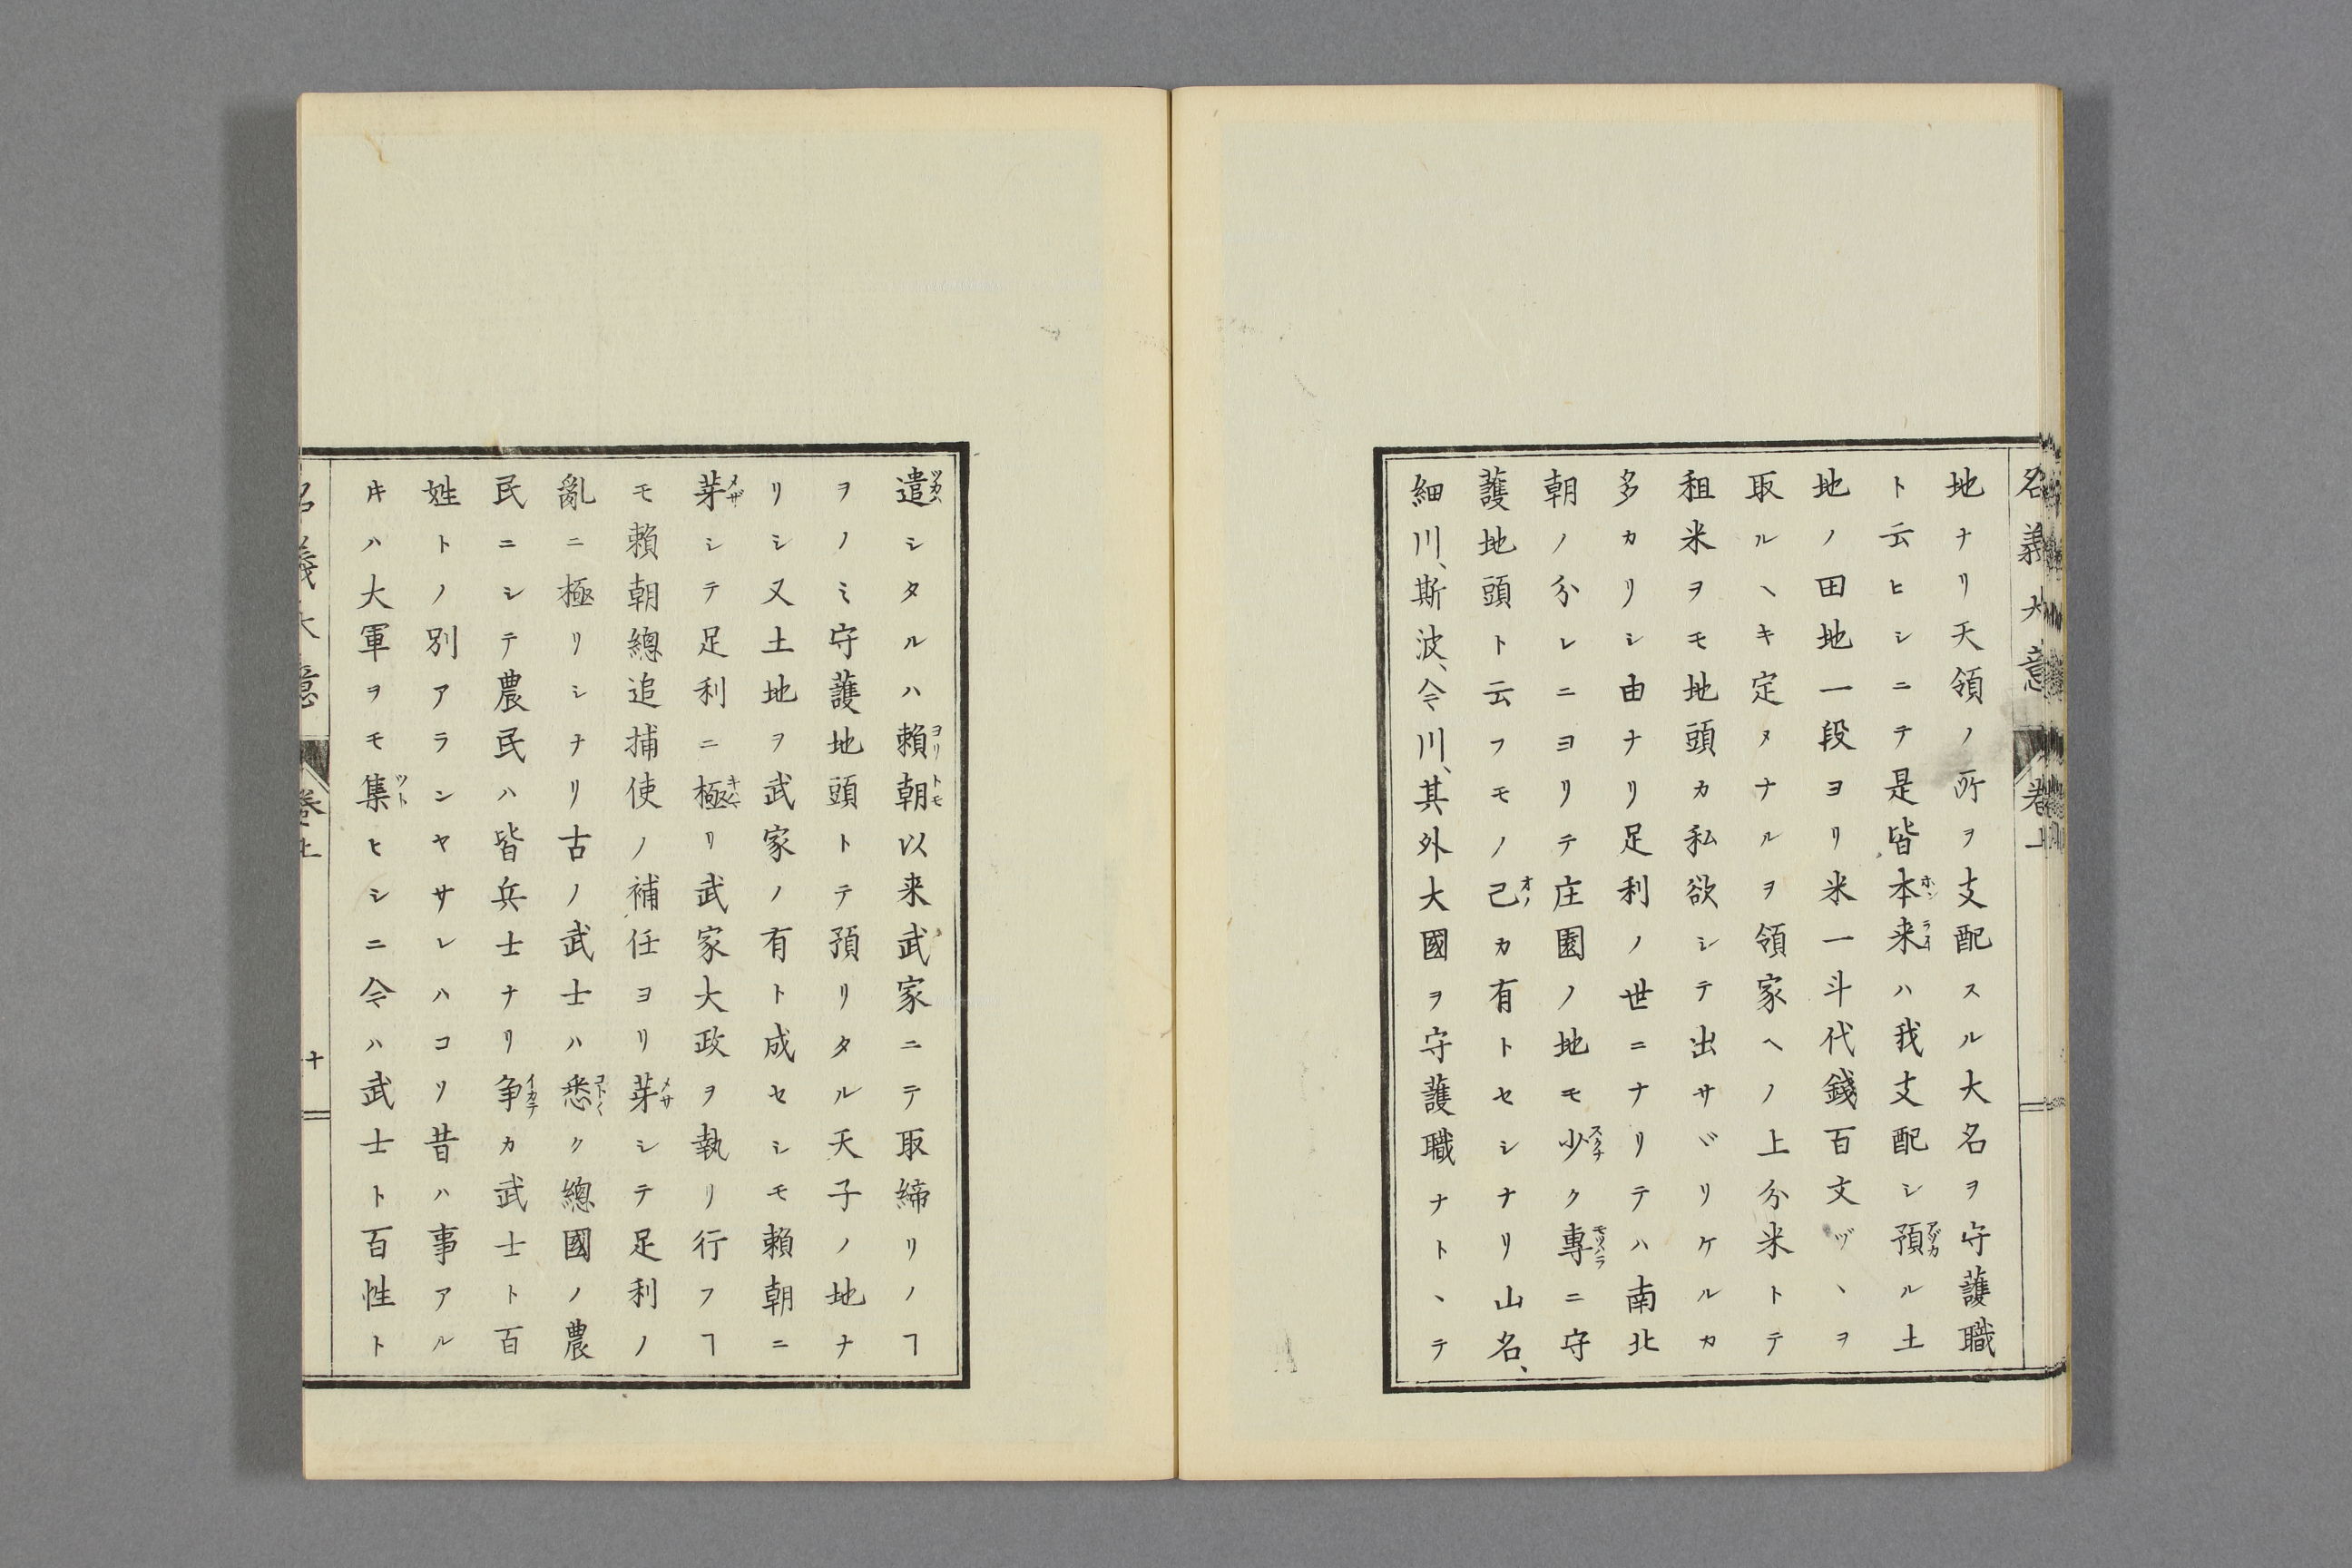 名義大意 卷上
地ナリ天領ノ所ヲ支配スル大名ヲ守護職
ト云ヒシニテ是皆本来ハ我支配シ預ル土
地ノ田地一段ヨリ米一斗代錢百文ヅヽヲ
取ルヘキ定ヌナルヲ領家ヘノ上分米トテ
租米ヲモ地頭カ私欲シテ出サヾリケルカ
多カリシ由ナリ足利ノ世ニナリテハ南北
朝ノ分レニヨリテ庄園ノ地モ少ク專ニ守
護地頭ト云フモノノ己カ有トセシナリ山名、
細川、斯波、今川、其外大國ヲ守護職ナトヽテ
遣シタルハ賴朝以来武家ニテ取締リノヿ
ヲノミ守護地頭トテ預リタル天子ノ地ナ
リシ又土地ヲ武家ノ有ト成セシモ賴朝ニ
芽シテ足利ニ極リ武家大政ヲ執リ行フヿ
モ賴朝總追捕使ノ補任ヨリ芽シテ足利ノ
亂ニ極リシナリ古ノ武士ハ悉ク總國ノ農
民ニシテ農民ハ皆兵士ナリ争カ武士ト百
姓トノ別アランヤサレハコソ昔ハ事アル
キハ大軍ヲモ集ヒシニ今ハ武士ト百性ト
名義大意 卷上 十